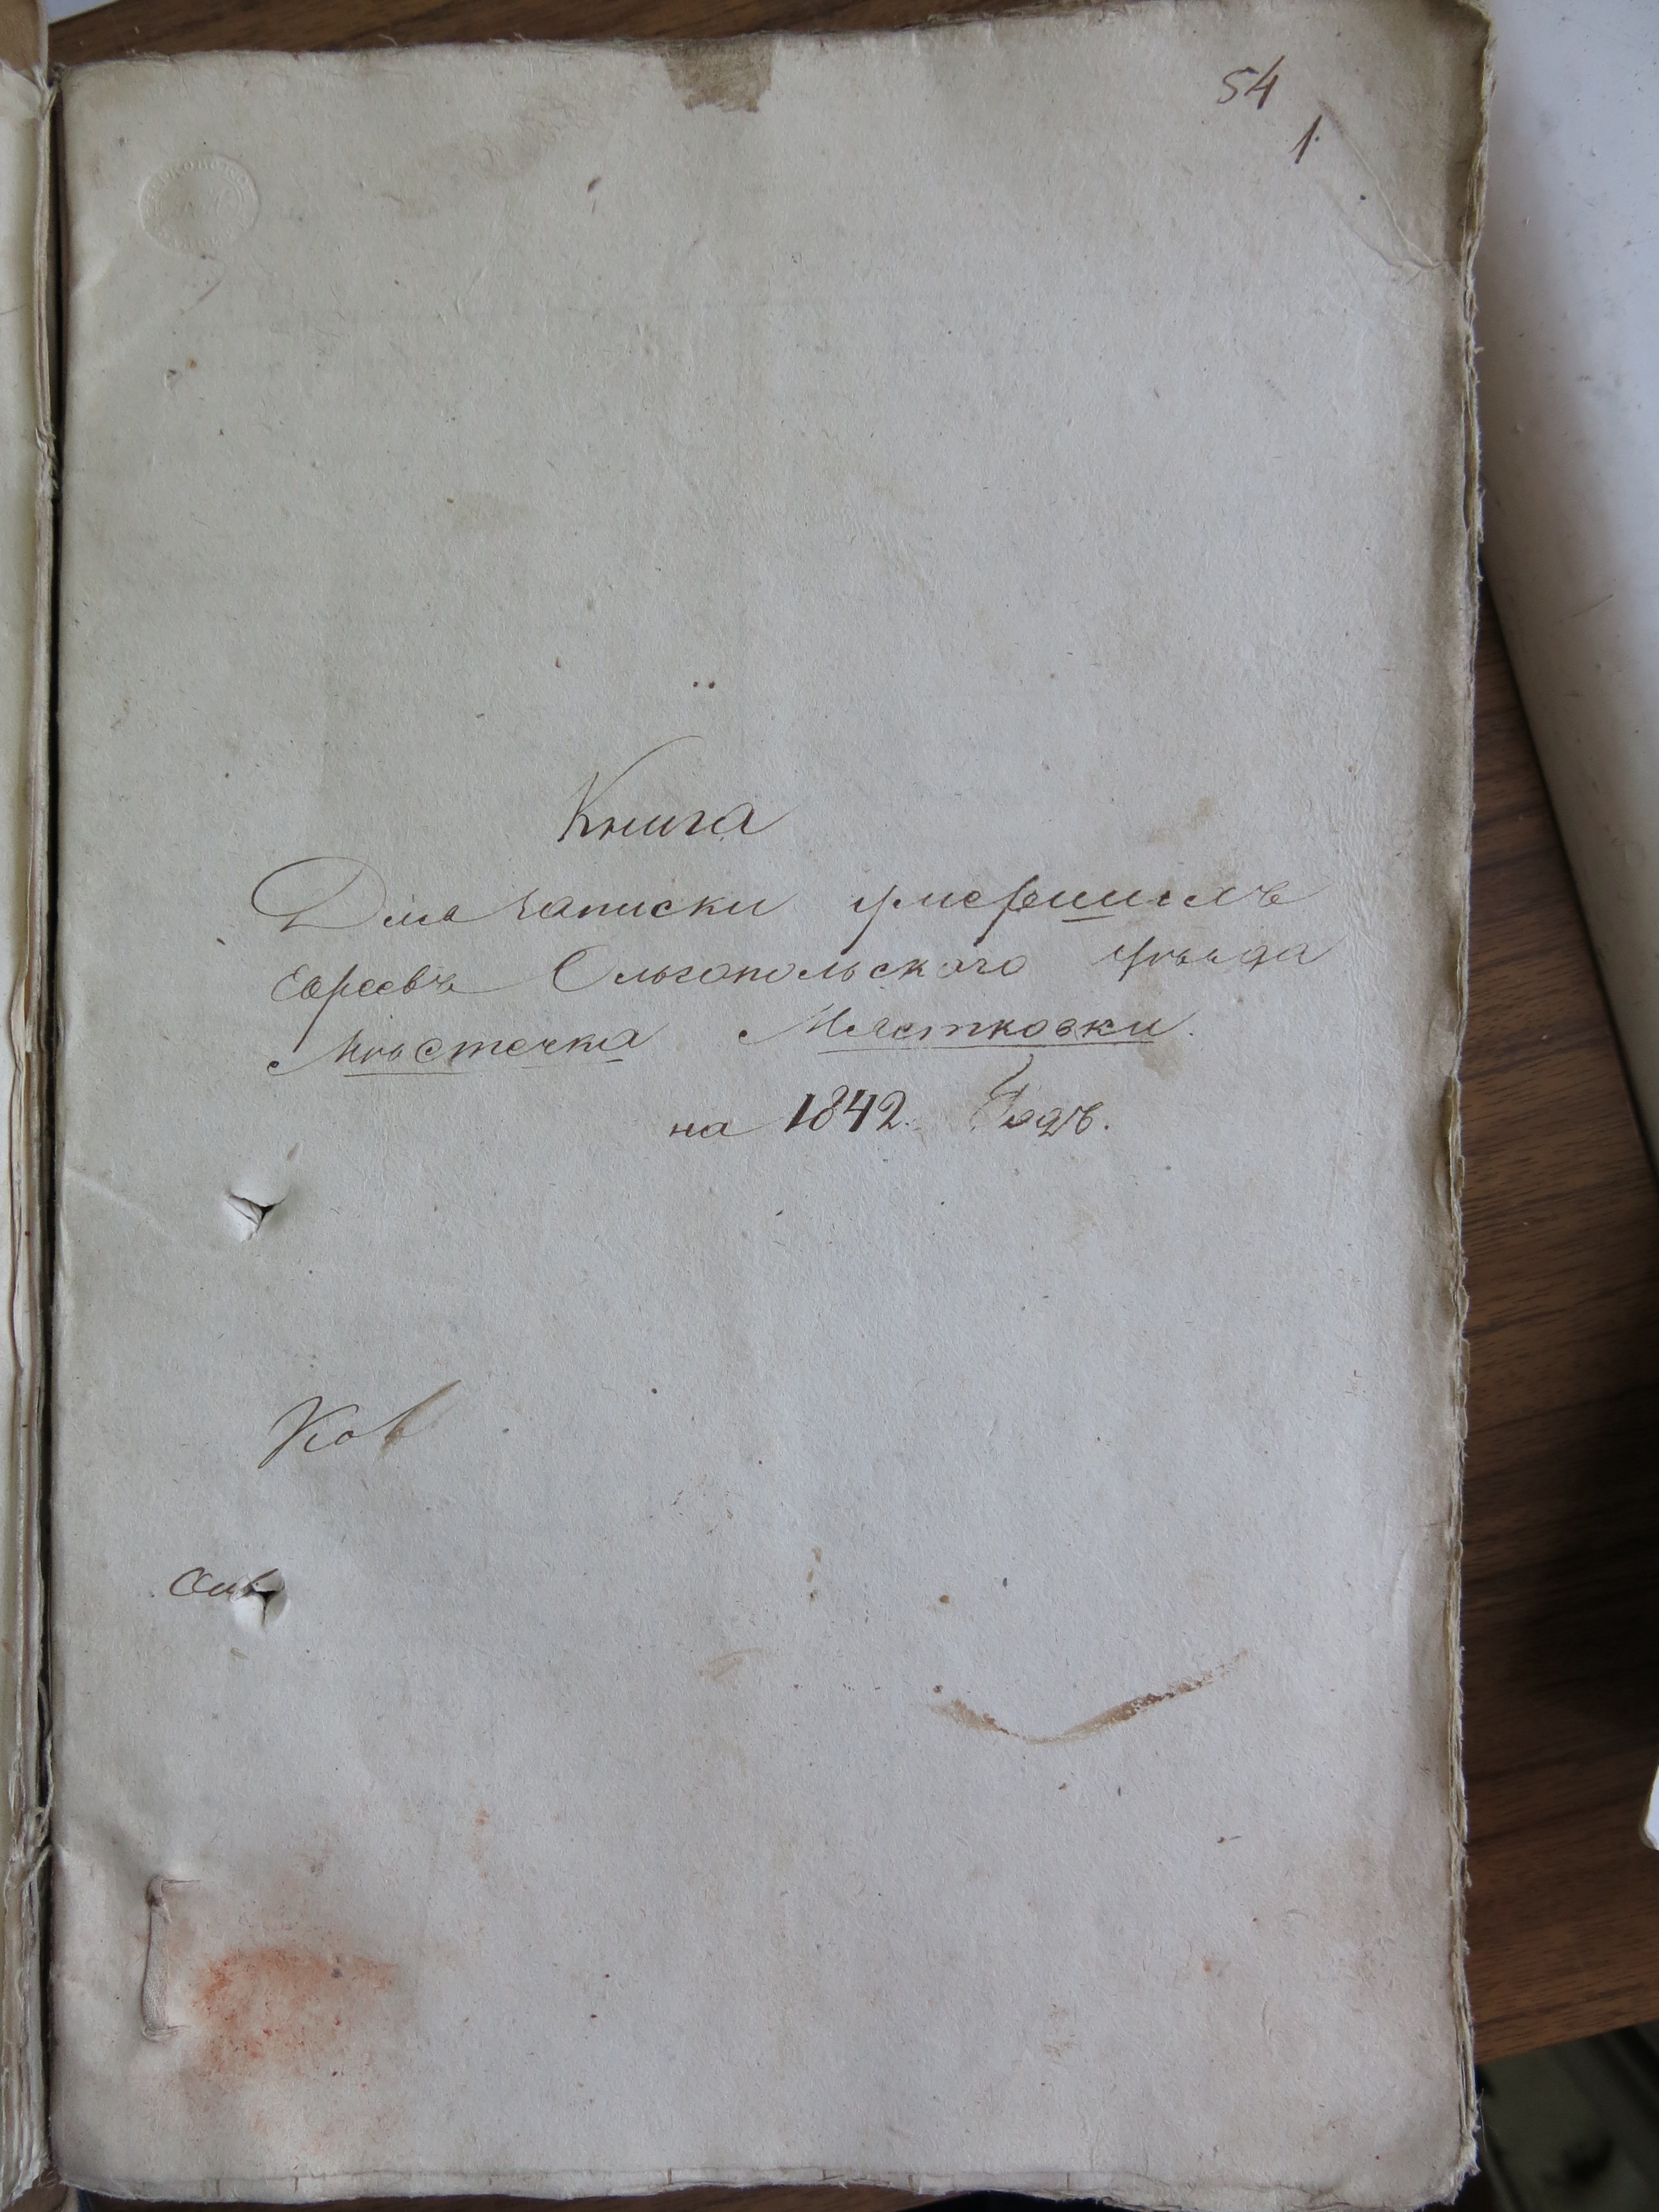 54
1.
Книга
Для записки умершихъ
Евреевъ Ольгопольского уѣзда
Мѣстечка Мястковки.
на 1842. Годъ.
Ков